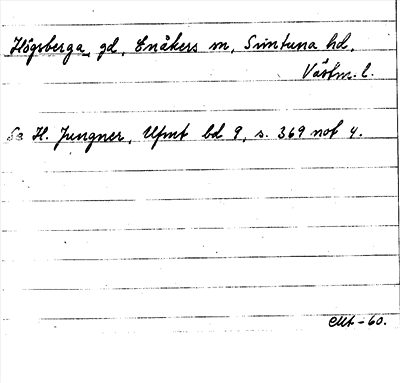 Högsberga, gd, Enåkers sn, Simtuna hd,
Västm. l.
Se H. Jungner, Ufmt bd 9, s. 369 not 4.
-60.